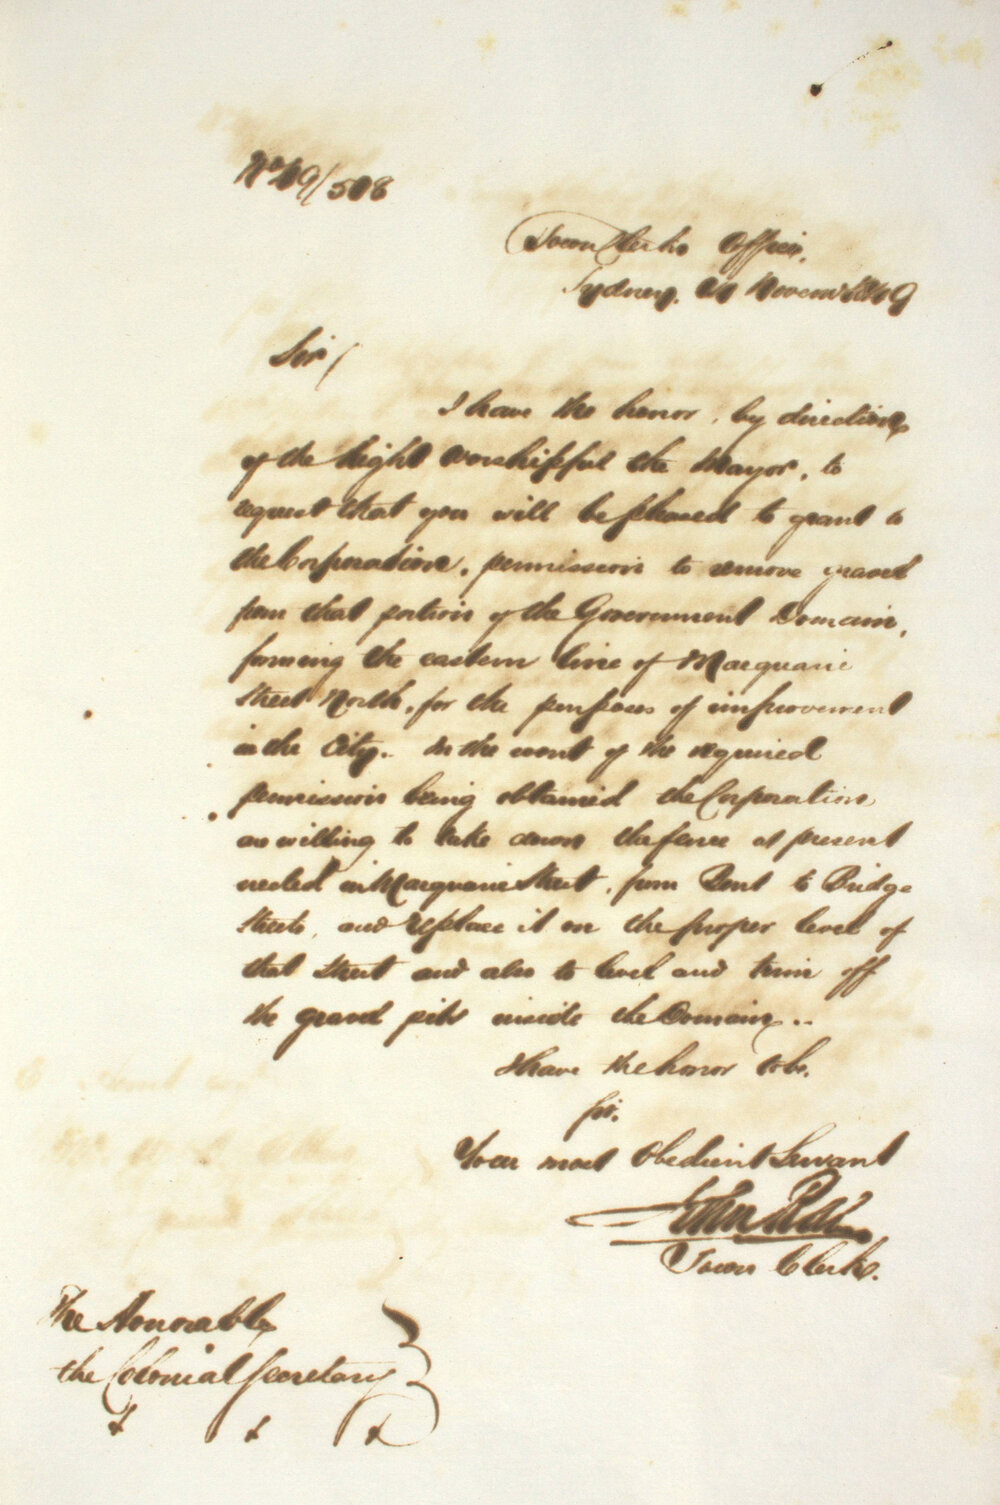 No 49/508
Town Clerks Office,
Sydney, November 1849
Sir/
I have the honor, by direction
of the Right Worshipful the Mayor, to
request that you will be pleased to grant to
the Corporation, permission to remove gravel
from that portion of the Government Domain,
forming the eastern line of Macquarie
Street North, for the purposes of improvement
in the City. In the event of the required
permission being obtained the Corporation
are willing to take down the fence at present
erected in Macquarie Street, from Bent to Bridge
Streets, and replace it on the proper level of
that Street and also to level and trim off
the gravel pits inside the Domain..
I have the honor to be,
Sir,
Your most Obedient Servant
John Rae
Town Clerk.
The Honorable
the Colonial Secretary
&c &c &c